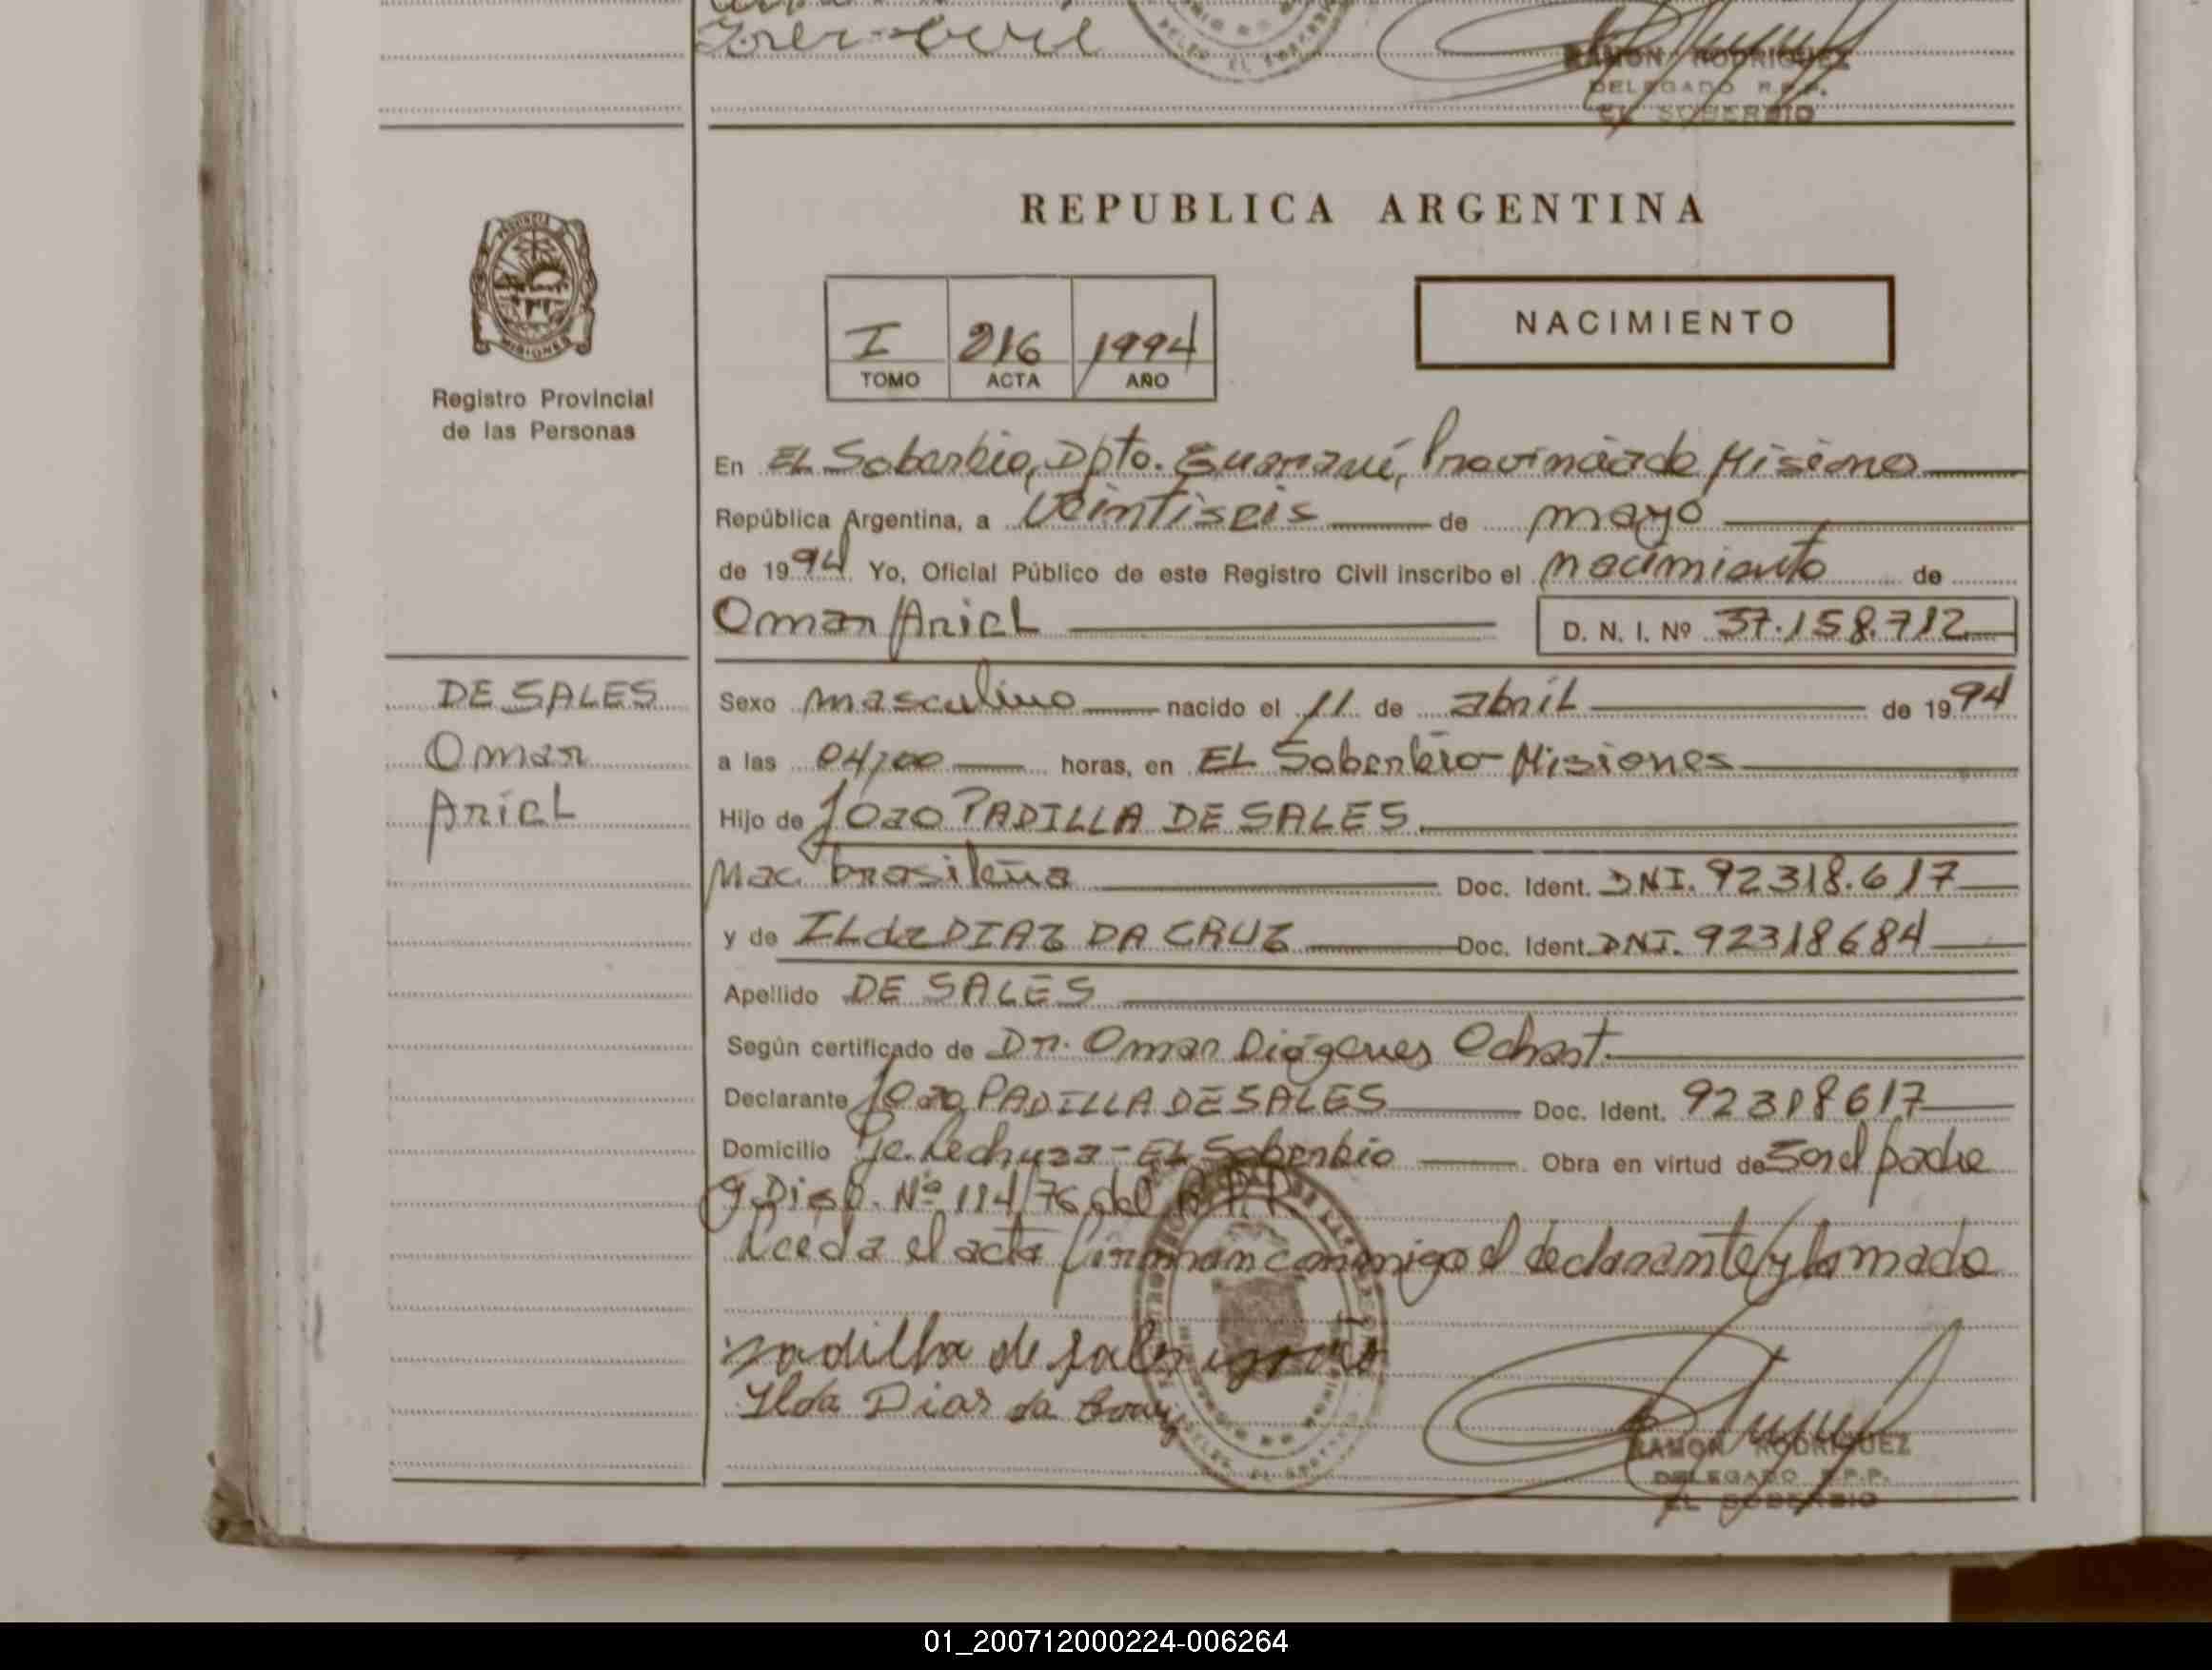 RAMON RODRIGUEZ
DELEGADO R.P.P.
EL SOBERBIO
PROVINCIA DE
MISIONES
Registro Provincial
de las Personas
REPUBLICA ARGENTINA
I 216 1994
TOMO ACTA AÑO
NACIMIENTO
En EL Soberbio, Dpto. Guaraní, Provincia de Misiones
República Argentina, a Veintiseis de mayo
de 1994 Yo, Oficial Público de este Registro Civil inscribo el nacimiento de
Omar Ariel D. N. I. Nº 37.158.712
DE SALES
Omar
Ariel
Sexo masculino nacido el 11 de abril de 1994
a las 04,00 horas, en EL Soberbio-Misiones
Hijo de Joao PADILLA DE SALES
Nac. brasileña Doc. Ident. DNI. 92318.617
y de ILda DIAZ DA CRUZ Doc. Ident. DNI. 92318684
Apellido DE SALES
Según certificado de Dr. Omar Diógenes Ochast.
Declarante Joao PADILLA DE SALES Doc. Ident. 92318617
Domicilio Pje. Lechuza - EL Soberbio Obra en virtud de Ser el padre
y Disp. Nº 114/76 del R.P.P.
Leeda el acta firman conmigo el declarante y la madre
padilha de sales
Ilda Dias da Cruz
RAMON RODRIGUEZ
DELEGADO R.P.P.
EL SOBERBIO
01_200712000224-006264